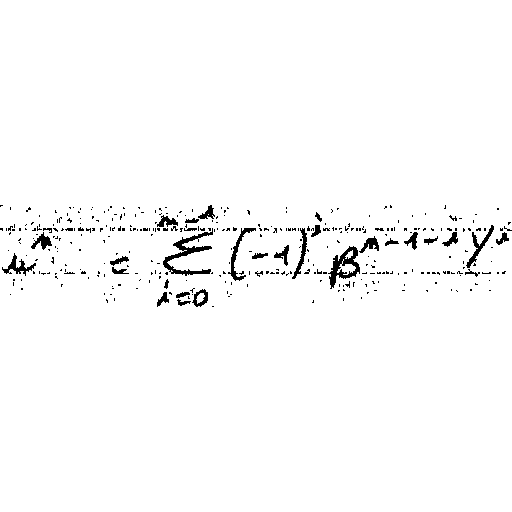 u^n = \sum_{i=0}^{n-1} (-1)^i \beta^{n-1-i} y^i